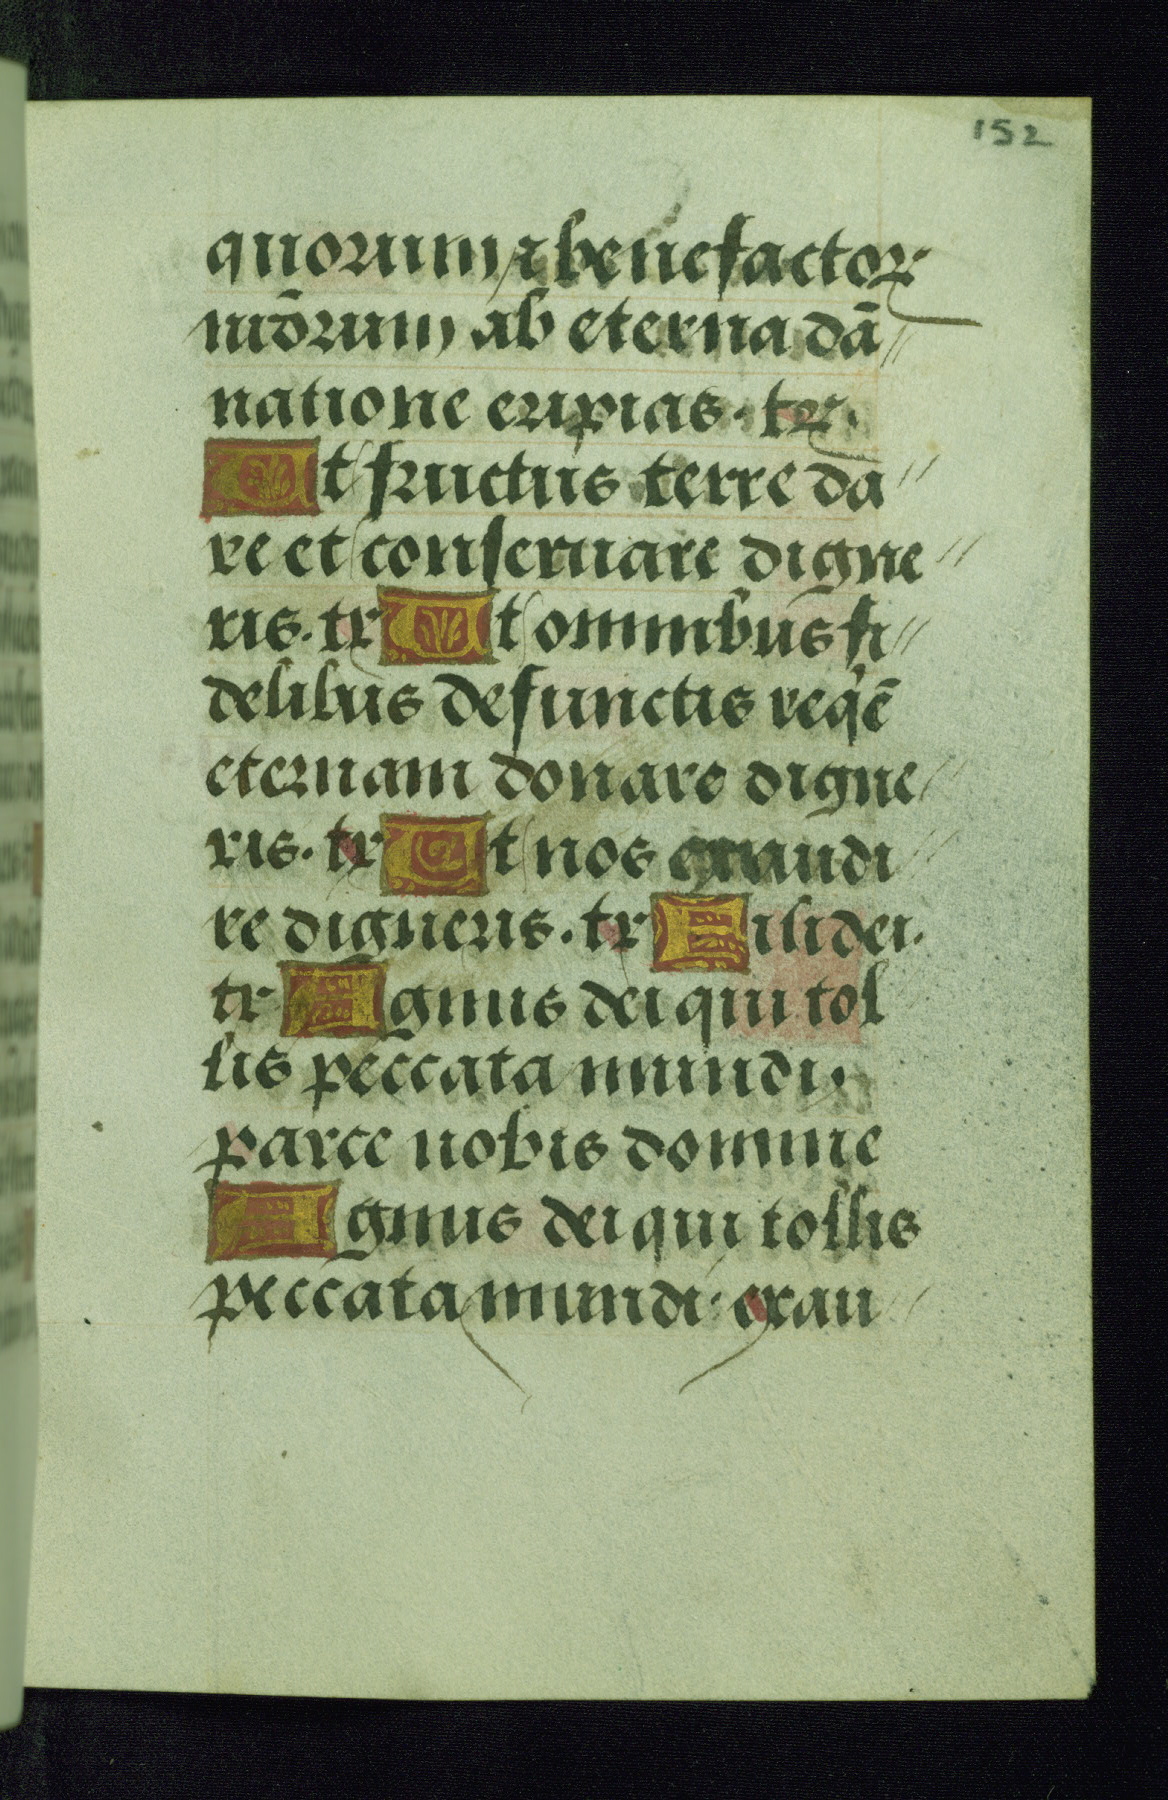 152
quorum ⁊ benefactoꝝ
nr̄orum ab eterna dā
natione eripias. tr.
Ut fructus terre da
re et conseruare digne
ris. tr Ut omnibus fi
delibus defunctis reqͥē
eternam donare digne
ris. tr Ut nos exaudi
re digneris. tr Fili dei.
tr Agnus dei qui tol
lis peccata mundi.
parce nobis domine
Agnus dei qui tollis
peccata mundi. exau